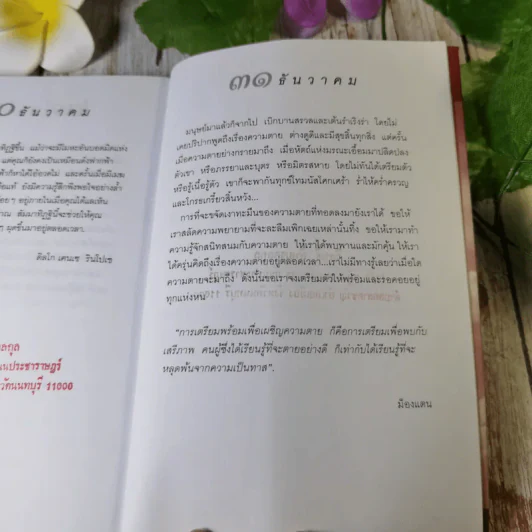 ๐ ธันวาคม
แม้ว่าจะมีไมพระอันบอดมิดแห่ง
แต่คุณก็ยังคงเป็นเหมือนดั่งฟากฟ้า
ยังมีความรู้สึกพึงพอใจอย่างล้ำ
อยู่ภายในเมื่อคุณได้แลเห็น
สัมมาทิฏฐินี้จะช่วยให้คุณ
ผุดขึ้นมาอยู่ตลอดเวลา
ดิลโก เคนเซ รินโปเช
นนประชาราษฎร์
11000
๓๑ ธันวาคม
มนุษย์มาแล้วก็จากไป เบิกบานสรวลและเต้นรำเริงร่า โดยไม่
เคยปริปากพูดถึงเรื่องความตาย ต่างดูดีและมีสุขสิ้นทุกสิ่ง แต่ครั้น
เมื่อความตายย่างกรายมาถึง เมื่อหัตถ์แห่งมรณะเอื้อมมาปลิดปลง
ตัวเขา หรือภรรยาและบุตร หรือมิตรสหาย โดยไม่ทันได้เตรียมตัว
หรือรู้เนื้อรู้ตัว เขาก็จะพากันทุกข์โทมนัสโศกเศร้า ร่ำไห้คร่ำครวญ
และโกรธเกรี้ยวสิ้นหวัง...
การที่จะขจัดเงาทะมึนของความตายที่ทอดลงมายังเราได้ ขอให้
เราสลัดความพยายามที่จะละลืมเพิกเฉยเหล่านั้นทิ้ง ขอให้เรามาทำ
ความรู้จักสนิทสนมกับความตาย ให้เราได้พบพานและมักคุ้น ให้เรา
ได้ครุ่นคิดถึงเรื่องความตายอยู่ตลอดเวลา...เราไม่มีทางรู้เลยว่าเมื่อใด
ความตายจะมาถึง ดังนั้นขอเราจงเตรียมตัวให้พร้อมและรอคอยอยู่
ทุกแห่งหน
"การเตรียมพร้อมเพื่อเผชิญความตาย ก็คือการเตรียมเพื่อพบกับ
เสรีภาพ คนผู้ซึ่งได้เรียนรู้ที่จะตายอย่างดี ก็เท่ากับได้เรียนรู้ที่จะ
หลุดพ้นจากความเป็นทาส".
ม็องแตน